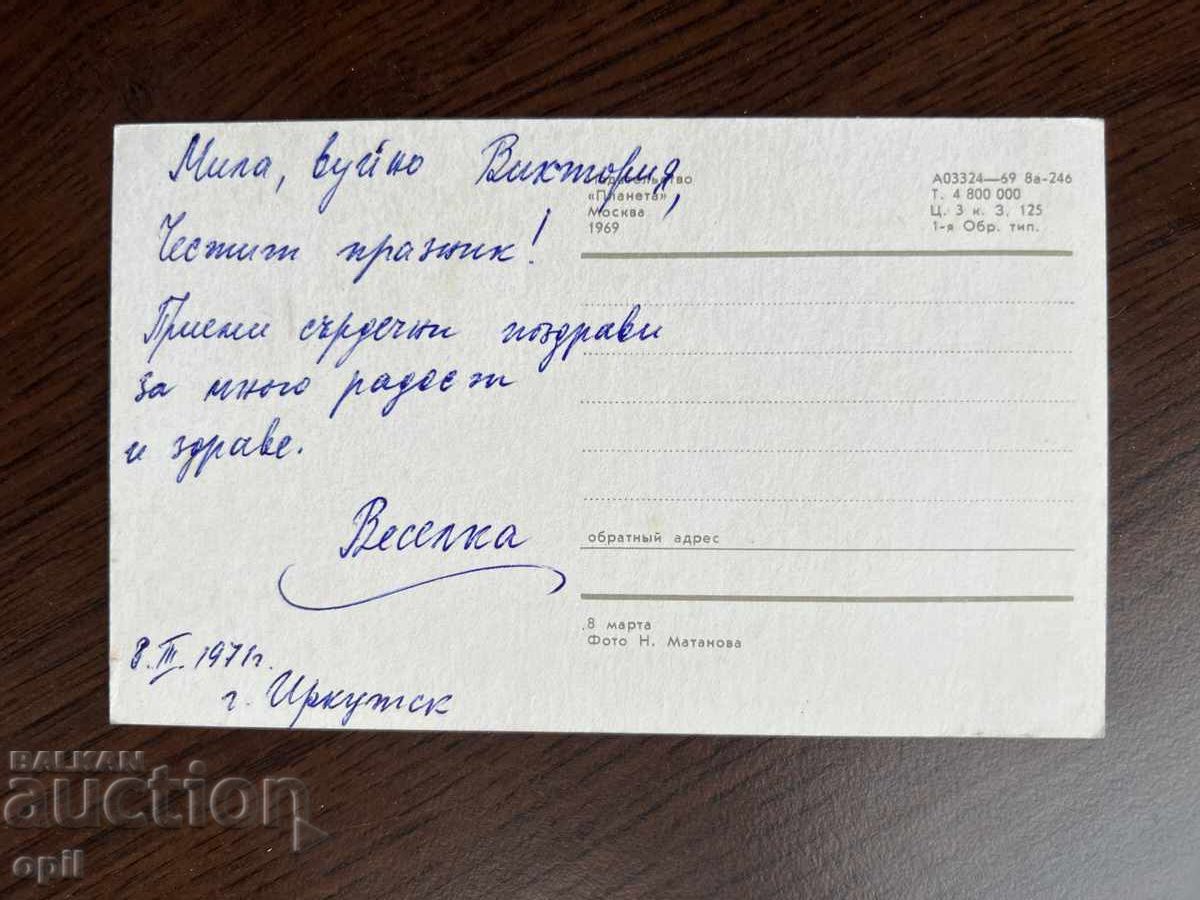 Мила, вуйно Виктория,
Честит празник!
Приеми сърдечни поздрави
за много радост
и здраве.
Веселка
8.III.1971г.
г. Иркутск
Издательство
«Планета»
Москва
1969
А03324—69 8а-246
Т. 4 800 000
Ц. 3 к. З. 125
1-я Обр. тип.
обратный адрес
8 марта
Фото Н. Матанова
BALKAN
auction
opil